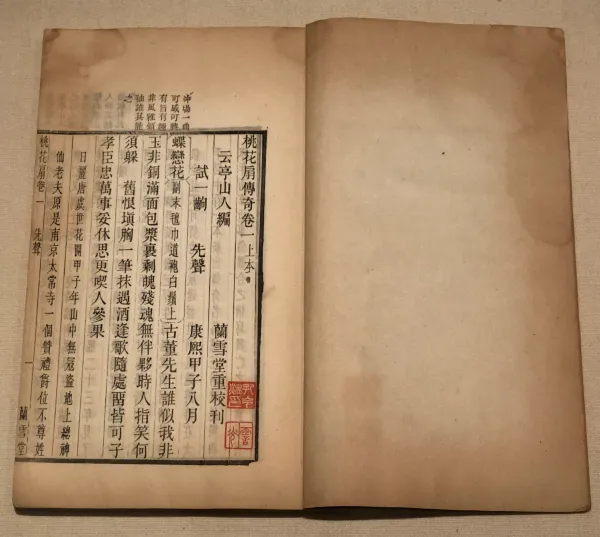 冲場一曲
可感可興
有旨有趣
非風雅領
袖誰其能
之
桃花扇傳奇卷一上本
云亭山人編 蘭雪堂重校刊
試一齣 先聲 康熙甲子八月
蝶戀花 副末氊巾道袍白鬚上 古董先生誰似我非
玉非銅滿面包漿裹剩魄殘魂無伴夥時人指笑何
須躲 舊恨塡胸一筆抹遇酒逢歌隨處畱皆可子
孝臣忠萬事妥休思更喫人參果
日麗唐虞世花開甲子年山中無寇盜地上總神
仙老夫原是南京太常寺一個贊禮爵位不尊姓
桃花扇卷一 先聲 一 蘭雪堂